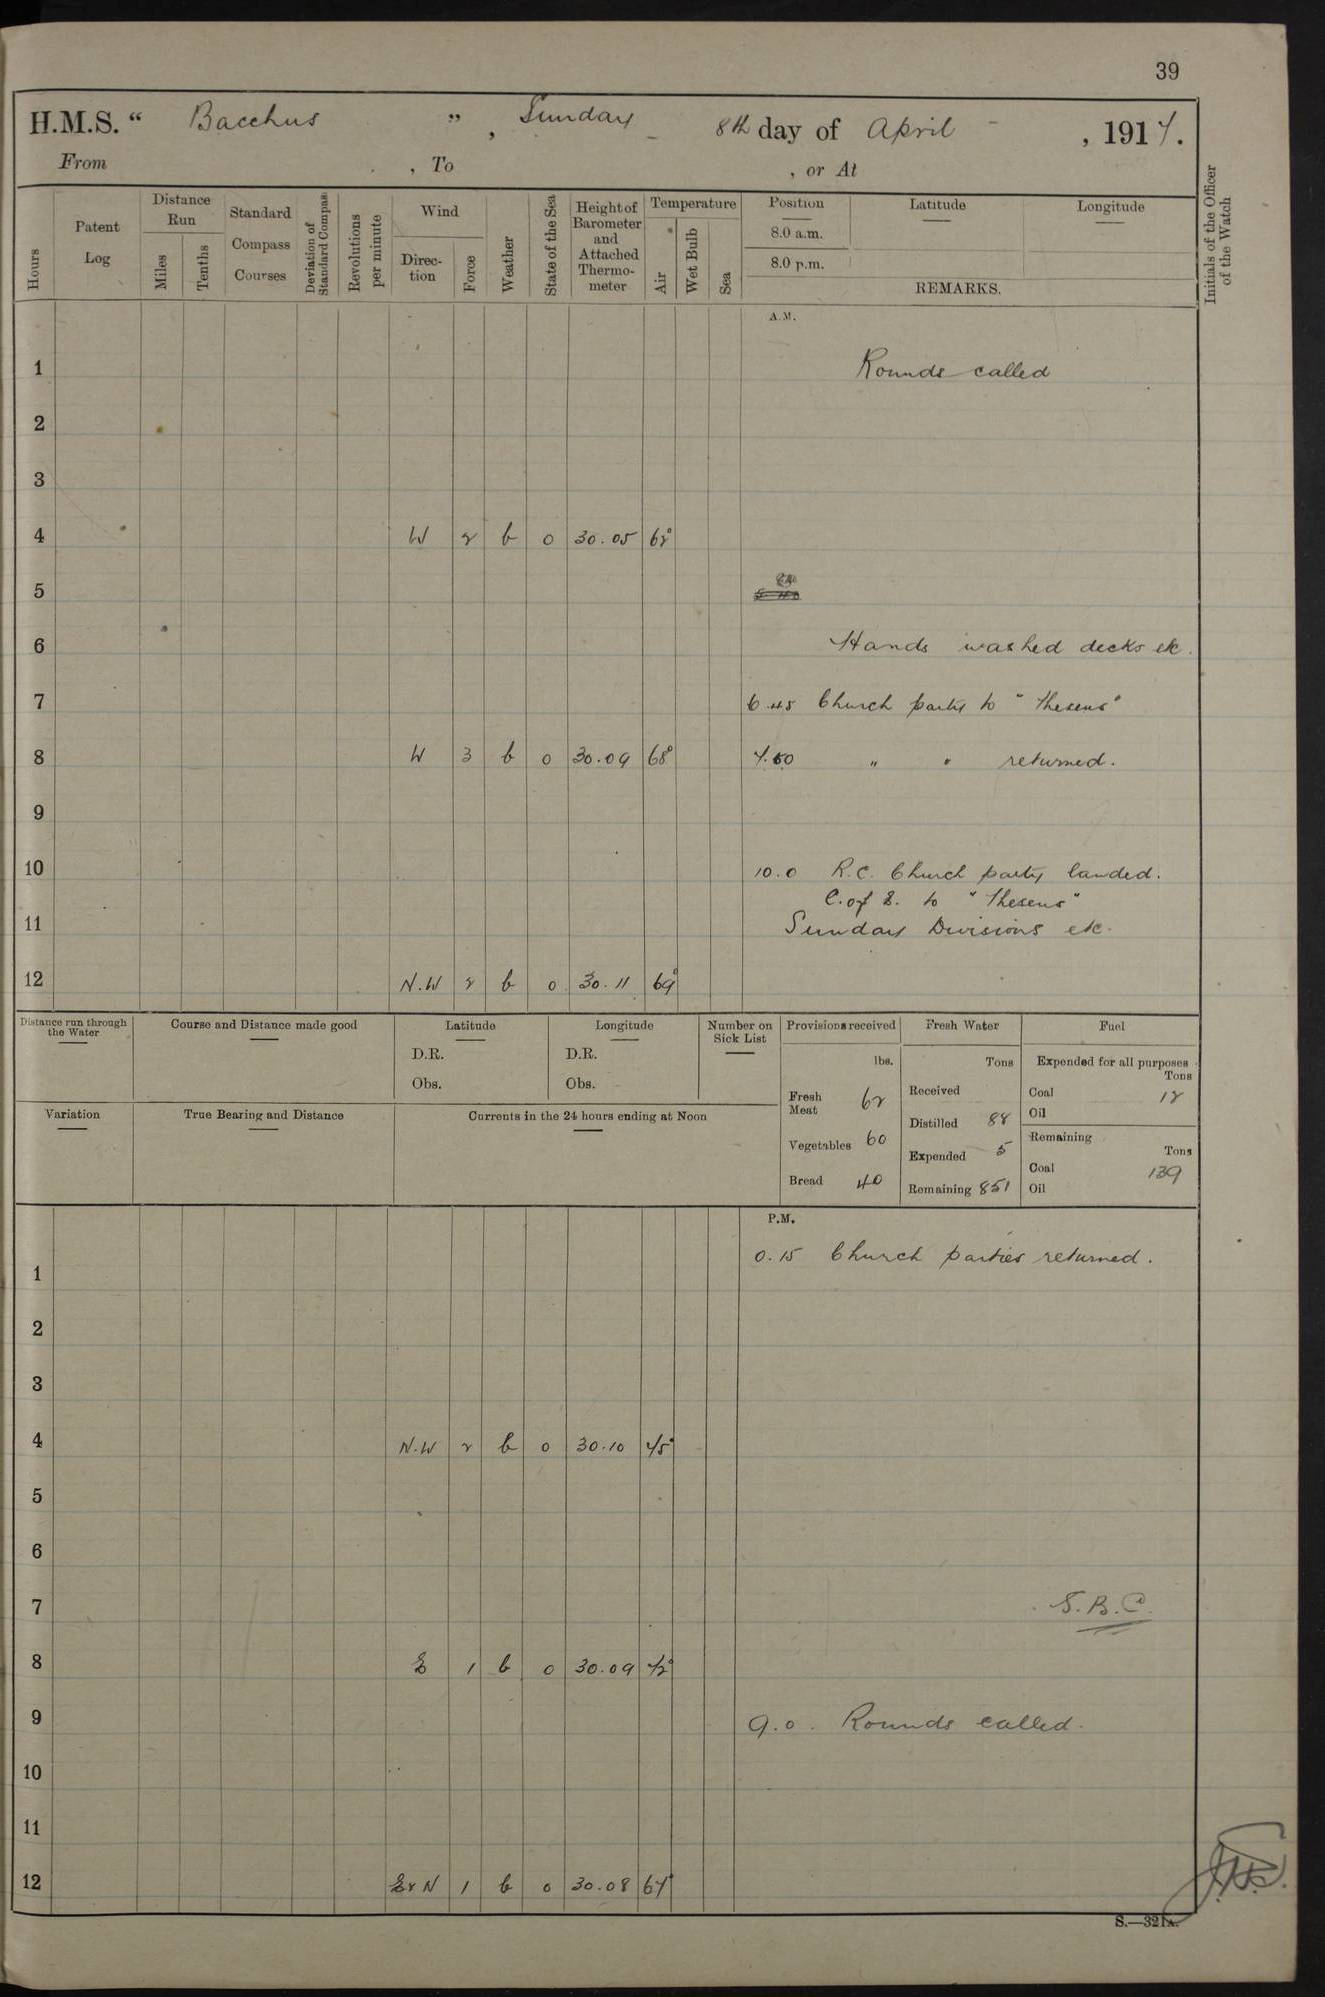 39
H.M.S. “ Bacchus ” , Sunday 8th day of April , 1917.
From , To , or At
Hours
Patent Log
Distance Run
Miles
Tenths
Standard Compass Courses
Deviation of Standard Compass
Revolutions per minute
Wind
Direction
Force
Weather
State of the Sea
Height of Barometer and Attached Thermometer
Temperature
Air
Wet Bulb
Sea
Position Latitude Longitude
8.0 a.m.
8.0 p.m.
REMARKS.
Initials of the Officer of the Watch
A.M.
1 Rounds called
2
3
4 W 2 b 0 30.05 62°
5
6 Hands washed decks etc.
7 6.45 Church party to "Theseus"
8 W 3 b 0 30.09 68° 7.50 " " returned.
9
10 10.0 R.C. Church party landed.
C. of E. to "Theseus"
11 Sunday Divisions etc.
12 N.W 2 b 0 30.11 69°
Distance run through the Water
Course and Distance made good
Latitude
D.R.
Obs.
Longitude
D.R.
Obs.
Number on Sick List
Provisions received
lbs.
Fresh Meat 62
Vegetables 60
Bread 40
Fresh Water
Tons
Received
Distilled 88
Expended 5
Remaining 851
Fuel
Expended for all purposes
Tons
Coal 12
Oil
Remaining
Tons
Coal 139
Oil
Variation
True Bearing and Distance
Currents in the 24 hours ending at Noon
P.M.
0.15 Church parties returned.
1
2
3
4 N.W 2 b 0 30.10 75°
5
6
7 S.B.C.
8 E 1 b 0 30.09 72°
9 9.0. Rounds called.
10
11
12 E x N 1 b 0 30.08 67°
S.—321A.